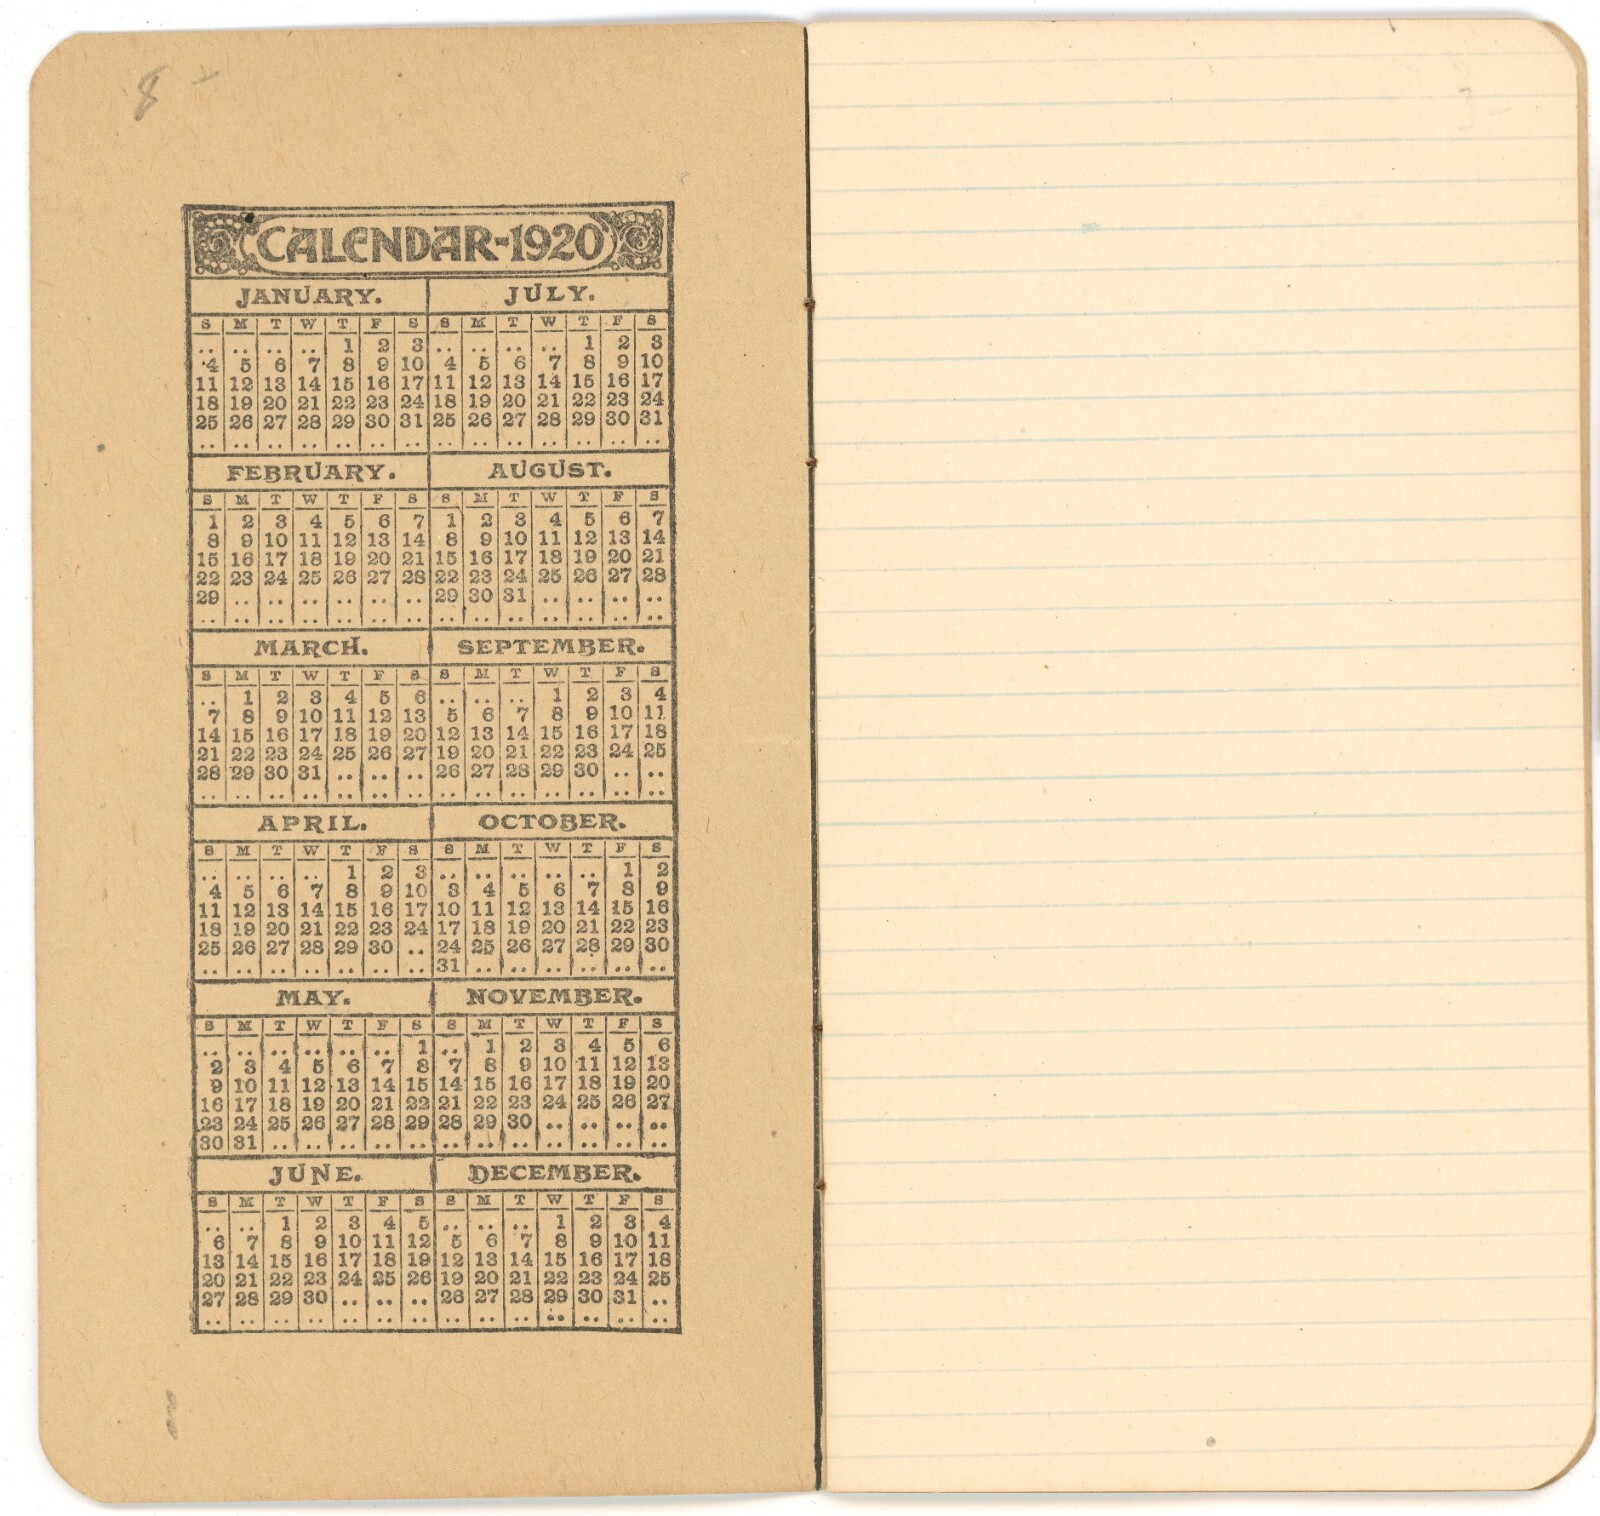 8
CALENDAR-1920
JANUARY.
S M T W T F S
.. .. .. .. 1 2 3
4 5 6 7 8 9 10
11 12 13 14 15 16 17
18 19 20 21 22 23 24
25 26 27 28 29 30 31
.. .. .. .. .. .. ..
FEBRUARY.
S M T W T F S
1 2 3 4 5 6 7
8 9 10 11 12 13 14
15 16 17 18 19 20 21
22 23 24 25 26 27 28
29 .. .. .. .. .. ..
.. .. .. .. .. .. ..
MARCH.
S M T W T F S
.. 1 2 3 4 5 6
7 8 9 10 11 12 13
14 15 16 17 18 19 20
21 22 23 24 25 26 27
28 29 30 31 .. .. ..
.. .. .. .. .. .. ..
APRIL.
S M T W T F S
.. .. .. .. 1 2 3
4 5 6 7 8 9 10
11 12 13 14 15 16 17
18 19 20 21 22 23 24
25 26 27 28 29 30 ..
.. .. .. .. .. .. ..
MAY.
S M T W T F S
.. .. .. .. .. .. 1
2 3 4 5 6 7 8
9 10 11 12 13 14 15
16 17 18 19 20 21 22
23 24 25 26 27 28 29
30 31 .. .. .. .. ..
JUNE.
S M T W T F S
.. .. 1 2 3 4 5
6 7 8 9 10 11 12
13 14 15 16 17 18 19
20 21 22 23 24 25 26
27 28 29 30 .. .. ..
.. .. .. .. .. .. ..
JULY.
S M T W T F S
.. .. .. .. 1 2 3
4 5 6 7 8 9 10
11 12 13 14 15 16 17
18 19 20 21 22 23 24
25 26 27 28 29 30 31
.. .. .. .. .. .. ..
AUGUST.
S M T W T F S
1 2 3 4 5 6 7
8 9 10 11 12 13 14
15 16 17 18 19 20 21
22 23 24 25 26 27 28
29 30 31 .. .. .. ..
.. .. .. .. .. .. ..
SEPTEMBER.
S M T W T F S
.. .. .. 1 2 3 4
5 6 7 8 9 10 11
12 13 14 15 16 17 18
19 20 21 22 23 24 25
26 27 28 29 30 .. ..
.. .. .. .. .. .. ..
OCTOBER.
S M T W T F S
.. .. .. .. .. 1 2
3 4 5 6 7 8 9
10 11 12 13 14 15 16
17 18 19 20 21 22 23
24 25 26 27 28 29 30
31 .. .. .. .. .. ..
NOVEMBER.
S M T W T F S
.. 1 2 3 4 5 6
7 8 9 10 11 12 13
14 15 16 17 18 19 20
21 22 23 24 25 26 27
28 29 30 .. .. .. ..
.. .. .. .. .. .. ..
DECEMBER.
S M T W T F S
.. .. .. 1 2 3 4
5 6 7 8 9 10 11
12 13 14 15 16 17 18
19 20 21 22 23 24 25
26 27 28 29 30 31 ..
.. .. .. .. .. .. ..